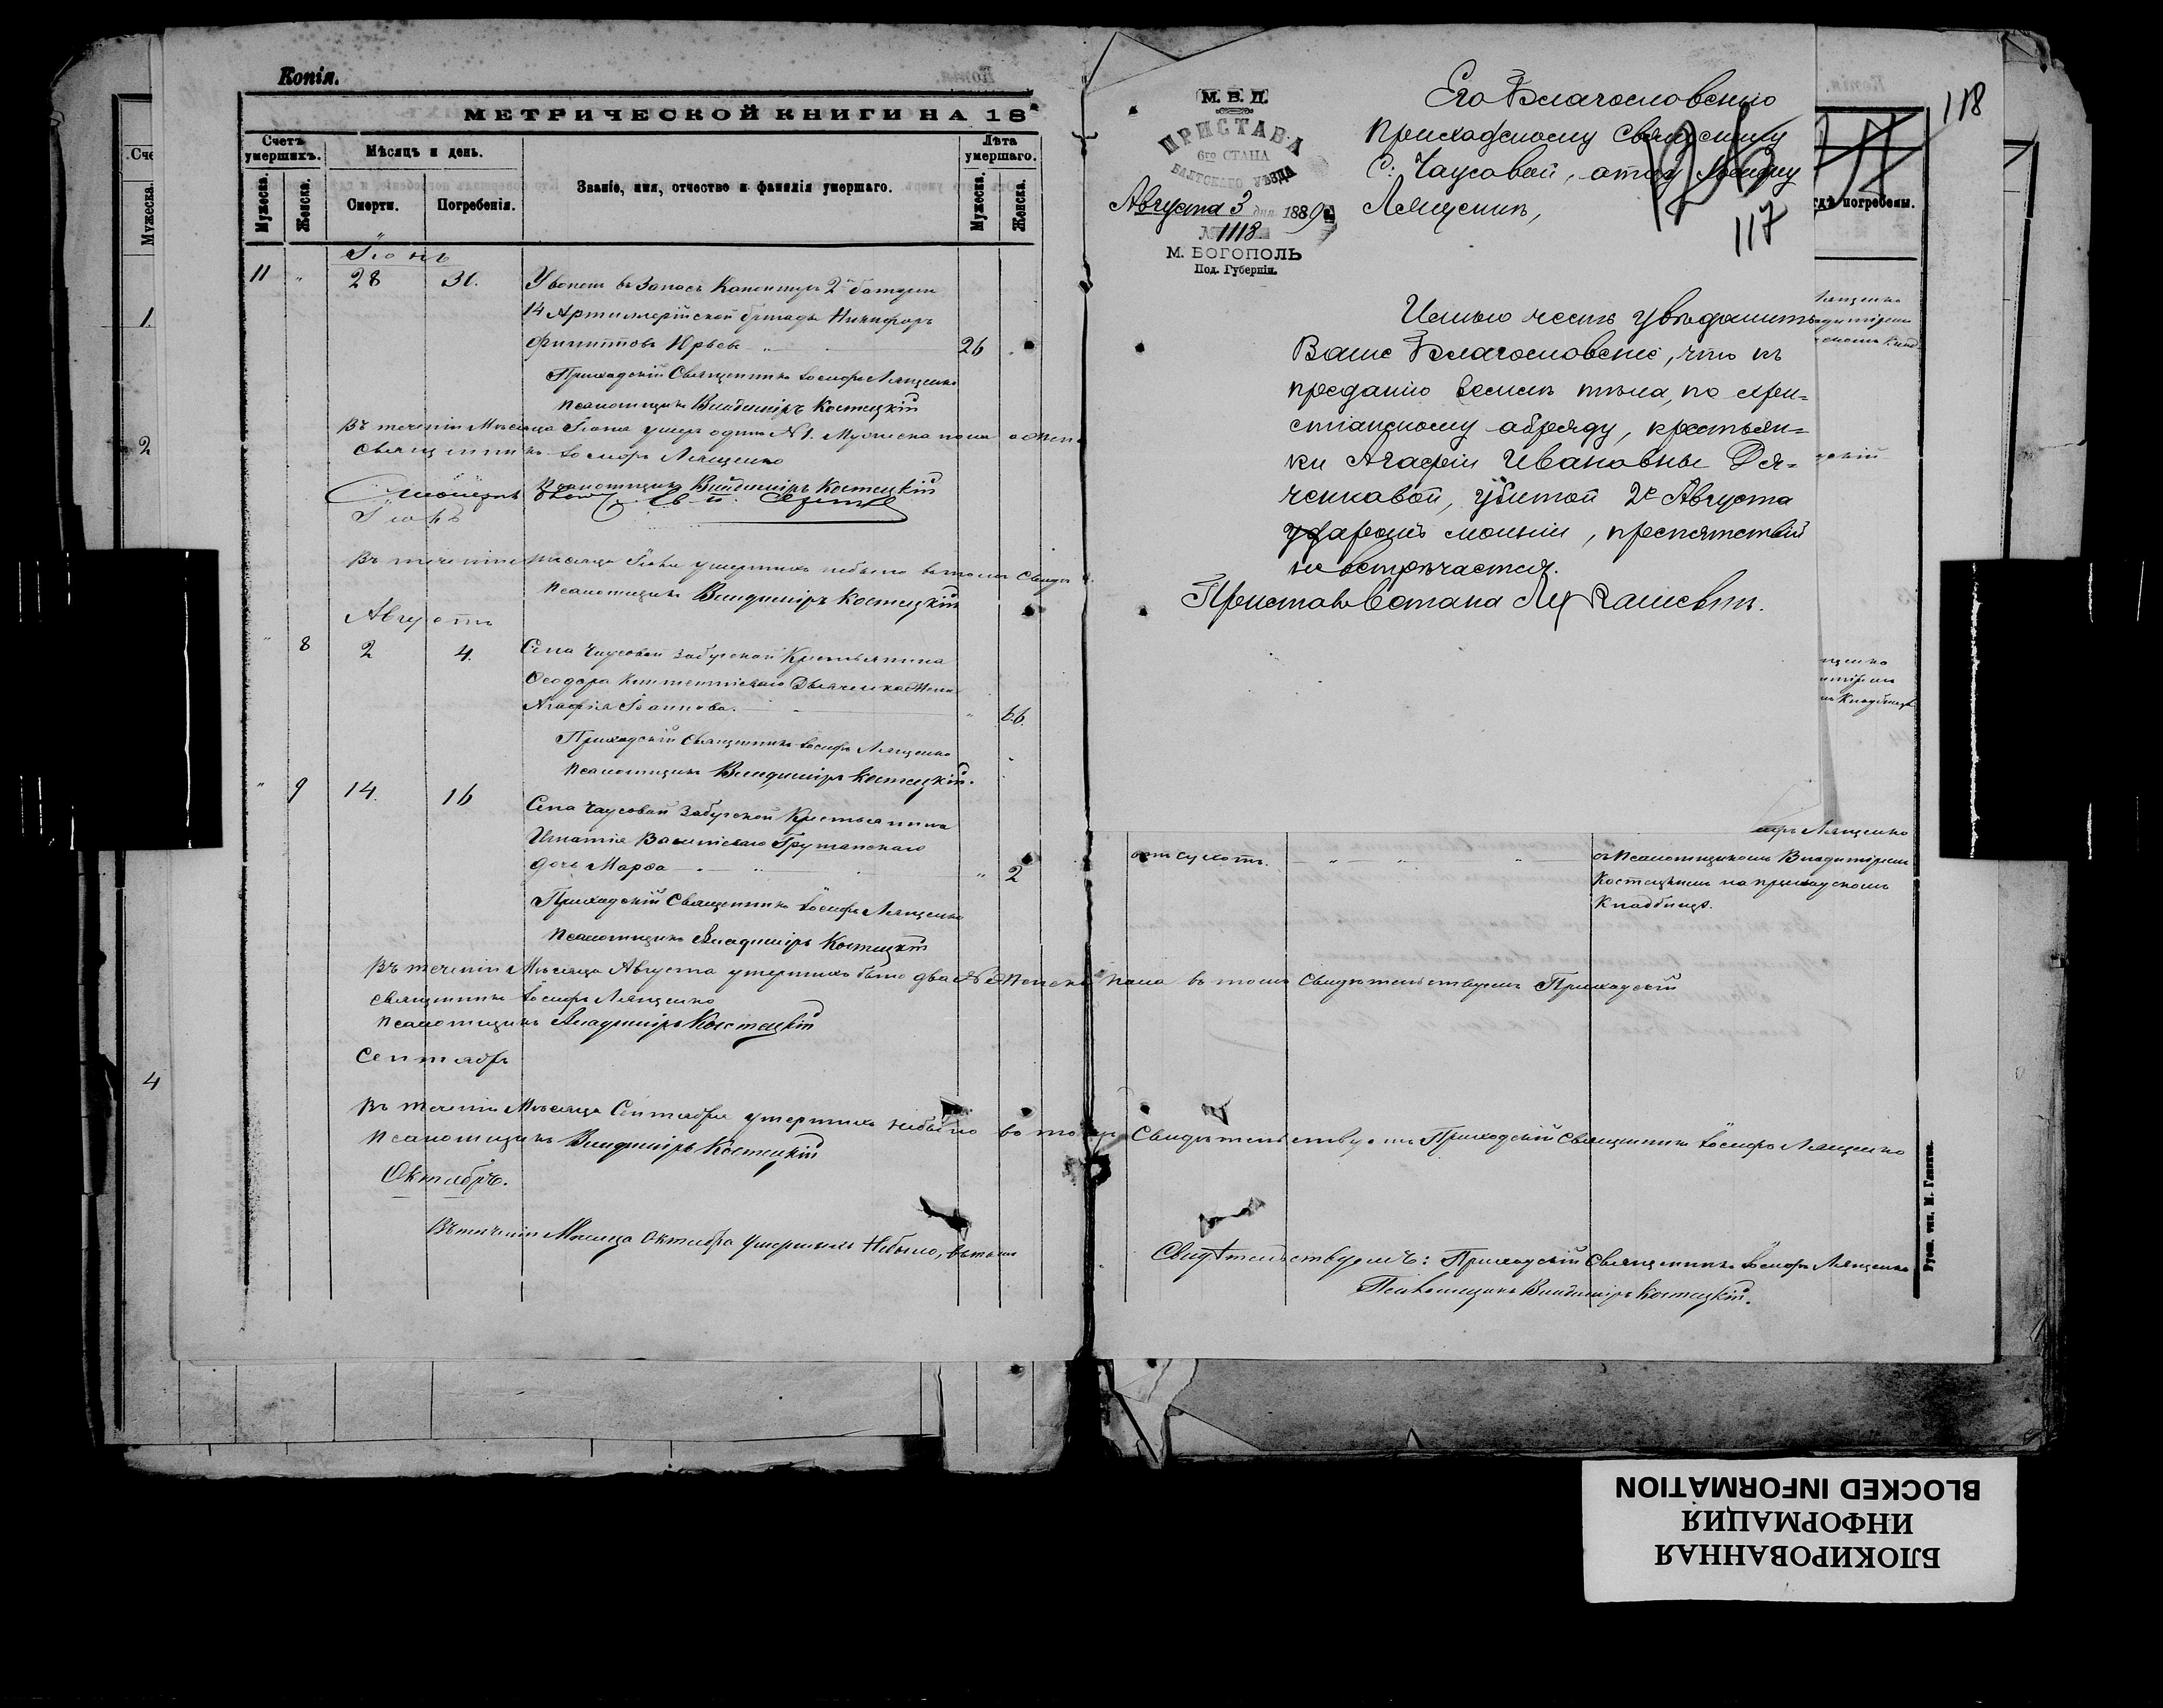 Копія.
МЕТРИЧЕСКОЙ КНИГИ НА 18
Счетъ умершихъ.
Мѣсяцъ и день.
Званіе, имя, отчество и фамилія умершаго.
Лѣта умершаго.
Мужеска.
Женска.
Смерти.
Погребенія.
Мужеска.
Женска.
Іюнь
11 " 28 30. Уволен въ Запасъ Канониръ 2й батареи
14 Артиллерійской бригады Никифоръ
Филипповъ Юрьевъ 26
Приходскій Священникъ Іосифъ Лященко
Псаломщикъ Владиміръ Костецкій
Въ теченіи Мѣсяца Іюня умеръ одинъ №1. Мужеска пола
Священникъ Іосифъ Лященко
Псаломщикъ Владиміръ Костецкій
Іюль
Въ теченіи мѣсяца Іюля умершихъ небыло въ томъ
Псаломщикъ Владиміръ Костецкій
Августъ
" 8 2 4. Села Чаусовой Забугской Крестьянина
Ѳеодора Климентіеваго Дьяченка Жена
Агафія Іоаннова. " 66
Приходскій Священникъ Іосифъ Лященко
Псаломщикъ Владиміръ Костецкій.
" 9 14. 16 Села Чаусовой Забугской Крестьянина
Игнатія Василіеваго
дочь Марѳа " 2
Приходскій Священникъ Іосифъ Лященко
Псаломщикъ Владиміръ Костецкій
Въ теченіи Мѣсяца Августа умершихъ было два Женска пола въ томъ Свидѣтельствуемъ Приходскій
Священникъ Іосифъ Лященко
Псаломщикъ Владиміръ Костецкій
Сентябрь
Въ теченіи Мѣсяца Сентября умершихъ небыло въ томъ Свидѣтельствуемъ Приходскій Священникъ Іосифъ Лященко
Псаломщикъ Владиміръ Костецкій
Октябрь.
Въ теченіи Мѣсяца Октября Умершихъ Небыло, въ томъ
Свидѣтельствуемъ: Приходскій Священникъ Іосифъ Лященко
Псаломщикъ Владиміръ Костецкій.
М. В. Д.
ПРИСТАВА
6го СТАНА
БАЛТСКАГО УѢЗДА
Августа 3 дня 1889 г.
№ 1118
М. БОГОПОЛЬ
Под. Губерніи.
Его Благословенію
Приходскому Священнику
С. Чаусовой, отцу Іосифу
117
118
Имѣю честь увѣдомить
Ваше Благословеніе, что къ
преданію землѣ тѣла, по хри=
стіанскому обряду, крестьян=
ки Агафіи Ивановны Дя=
ченковой, убитой 2го Августа
ударомъ молніи, препятствій
не встрѣчается.
Приставъ 6 стана
гдѣ погребены.
Лященко
отъ сухотъ.
съ Псаломщикомъ Владиміромъ
Костецкимъ на приходскомъ
Кладбищѣ.
Сче
Мужеска.
1.
2
4
БЛОКИРОВАННАЯ
ИНФОРМАЦИЯ
BLOCKED INFORMATION